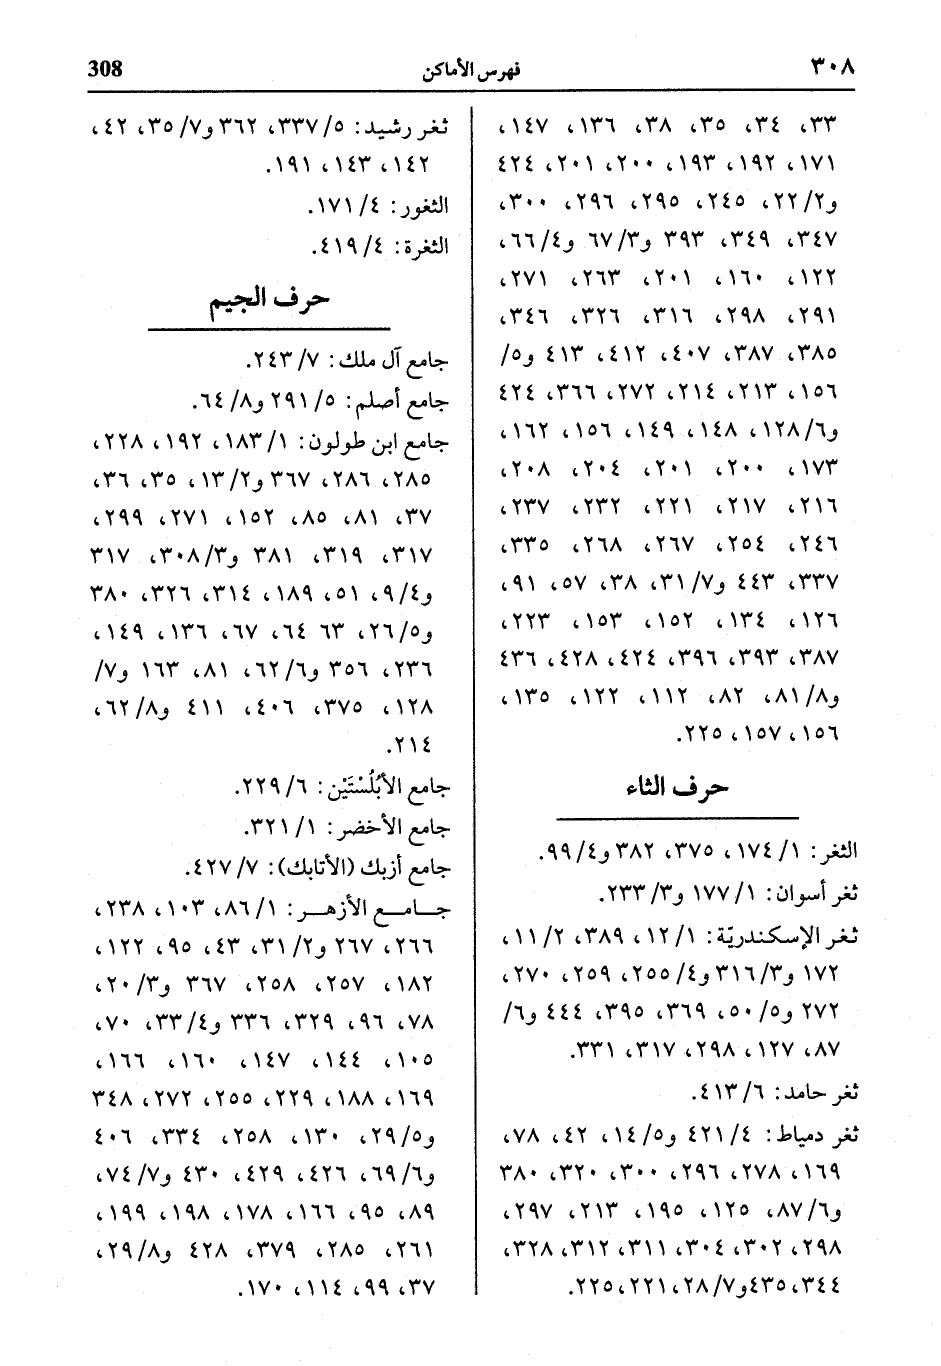 ٣٠٨
فهرس الأماكن
308
٣٣، ٣٤، ٣٥، ٣٨، ١٣٦، ١٤٧،
١٧١، ١٩٢، ١٩٣، ٢٠٠، ٢٠١، ٤٢٤
و٢/ ٢٢، ٢٤٥، ٢٩٥، ٢٩٦، ٣٠٠،
٣٤٧، ٣٤٩، ٣٩٣ و٣/ ٦٧ و٤/ ٦٦،
١٢٢، ١٦٠، ٢٠١، ٢٦٣، ٢٧١،
٢٩١، ٢٩٨، ٣١٦، ٣٢٦، ٣٤٦،
٣٨٥، ٣٨٧، ٤٠٧، ٤١٢، ٤١٣ و٥/
١٥٦، ٢١٣، ٢١٤، ٢٧٢، ٣٦٦، ٤٢٤
و٦/ ١٢٨، ١٤٨، ١٤٩، ١٥٦، ١٦٢،
١٧٣، ٢٠٠، ٢٠١، ٢٠٤، ٢٠٨،
٢١٦، ٢١٧، ٢٢١، ٢٣٢، ٢٣٧،
٢٤٦، ٢٥٤، ٢٦٧، ٢٦٨، ٣٣٥،
٣٣٧، ٤٤٣ و٧/ ٣١، ٣٨، ٥٧، ٩١،
١٢٦، ١٣٤، ١٥٢، ١٥٣، ٢٢٣،
٣٨٧، ٣٩٣، ٣٩٦، ٤٢٤، ٤٢٨، ٤٣٦
و٨/ ٨١، ٨٢، ١١٢، ١٢٢، ١٣٥،
١٥٦، ١٥٧، ٢٢٥.
حرف الثاء
الثغر: ١/ ١٧٤، ٣٧٥، ٣٨٢ و٤/ ٩٩.
ثغر أسوان: ١/ ١٧٧ و٣/ ٢٣٣.
ثغر الإسكندريّة: ١/ ١٢، ٣٨٩، ٢/ ١١،
١٧٢ و٣/ ٣١٦ و٤/ ٢٥٥، ٢٥٩، ٢٧٠،
٢٧٢ و٥/ ٥٠، ٣٦٩، ٣٩٥، ٤٤٤ و٦/
٨٧، ١٢٧، ٢٩٨، ٣١٧، ٣٣١.
ثغر حامد: ٦/ ٤١٣.
ثغر دمياط: ٤/ ٤٢١ و٥/ ١٤، ٤٢، ٧٨،
١٦٩، ٢٧٨، ٢٩٦، ٣٠٠، ٣٢٠، ٣٨٠
و٦/ ٨٧، ١٢٥، ١٩٥، ٢١٣، ٢٩٧،
٢٩٨، ٣٠٢، ٣٠٤، ٣١١، ٣١٢، ٣٢٨،
٣٤٤، ٤٣٥ و٧/ ٢٨، ٢٢١، ٢٢٥.
ثغر رشيد: ٥/ ٣٣٧، ٣٦٢ و٧/ ٣٥، ٤٢،
١٤٢، ١٤٣، ١٩١.
الثغور: ٤/ ١٧١.
الثغرة: ٤/ ٤١٩.
حرف الجيم
جامع آل ملك: ٧/ ٢٤٣.
جامع أصلم: ٥/ ٢٩١ و٨/ ٦٤.
جامع ابن طولون: ١/ ١٨٣، ١٩٢، ٢٢٨،
٢٨٥، ٢٨٦، ٣٦٧ و٢/ ١٣، ٣٥، ٣٦،
٣٧، ٨١، ٨٥، ١٥٢، ٢٧١، ٢٩٩،
٣١٧، ٣١٩، ٣٨١ و٣/ ٣٠٨، ٣١٧
و٤/ ٩، ٥١، ١٨٩، ٣١٤، ٣٢٦، ٣٨٠
و٥/ ٢٦، ٦٣ ٦٤، ٦٧، ١٣٦، ١٤٩،
٢٣٦، ٣٥٦ و٦/ ٦٢، ٨١، ١٦٣ و٧/
١٢٨، ٣٧٥، ٤٠٦، ٤١١ و٨/ ٦٢،
٢١٤.
جامع الأبُلُسْتَيْن: ٦/ ٢٢٩.
جامع الأخضر: ١/ ٣٢١.
جامع أزبك (الأتابك): ٧/ ٤٢٧.
جـامـع الأزهـر: ١/ ٨٦، ١٠٣، ٢٣٨،
٢٦٦، ٢٦٧ و٢/ ٣١، ٤٣، ٩٥، ١٢٢،
١٨٢، ٢٥٧، ٢٥٨، ٣٦٧ و٣/ ٢٠،
٧٨، ٩٦، ٣٢٩، ٣٣٦ و٤/ ٣٣، ٧٠،
١٠٥، ١٤٤، ١٤٧، ١٦٠، ١٦٦،
١٦٩، ١٨٨، ٢٢٩، ٢٥٥، ٢٧٢، ٣٤٨
و٥/ ٢٩، ١٣٠، ٢٥٨، ٣٣٤، ٤٠٦
و٦/ ٦٩، ٤٢٦، ٤٢٩، ٤٣٠ و٧/ ٧٤،
٨٩، ٩٥، ١٦٦، ١٧٨، ١٩٨، ١٩٩،
٢٦١، ٢٨٥، ٣٧٩، ٤٢٨ و٨/ ٢٩،
٣٧، ٩٩، ١١٤، ١٧٠.